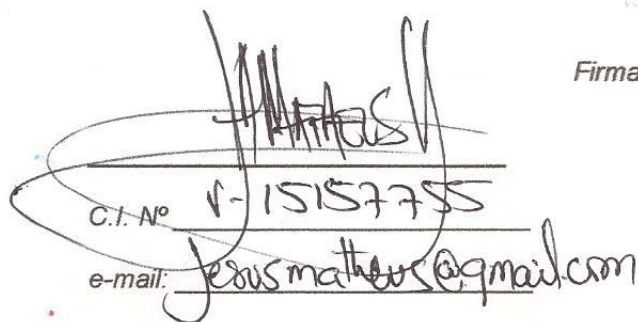 Firma
Matheus
C.I. Nº V-15157755
e-mail: Jesusmatheus@gmail.com